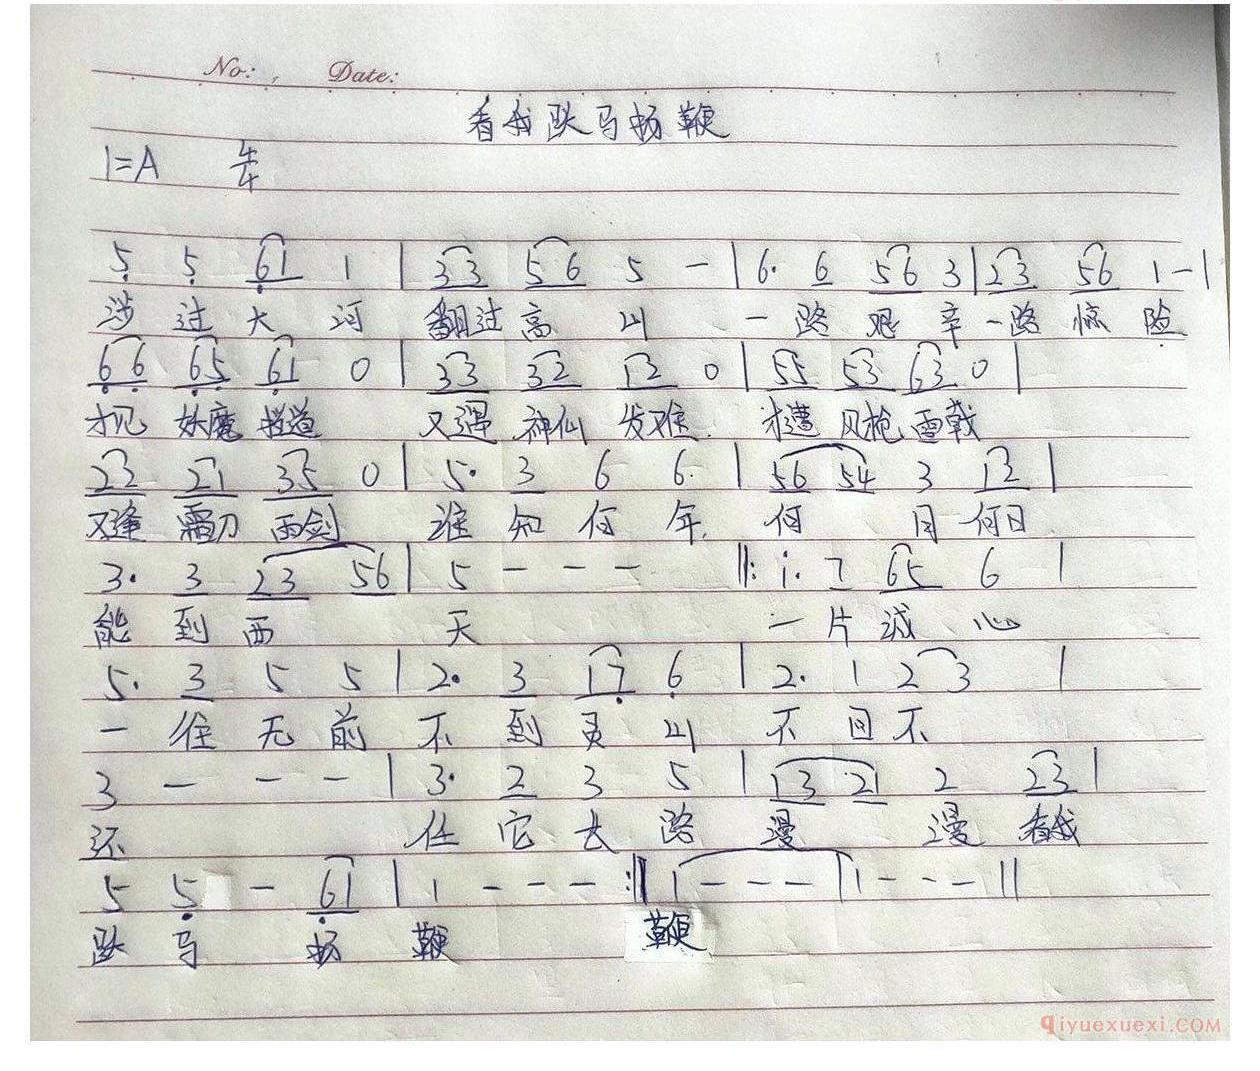 No: Date:
看我跃马扬鞭
1=A 4/4
5 5 61 1 | 33 56 5 - | 6. 6 56 3 | 23 56 1 - |
涉 过 大 河 翻过 高 山 一 路 艰 辛 一路 惊 险
66 65 61 0 | 33 32 12 0 | 55 53 63 0 |
才见 妖魔 挡道 又遇 神仙 发难 才遭 风枪 雷戟
22 21 35 0 | 5. 3 6 6. | 56 54 3 12 |
又逢 霜刀 雨剑 谁 知 何 年 何 月 何日
3. 3 23 56 | 5 - - - ‖: i. 7 65 6 |
能 到 西 天 一 片 诚 心
5. 3 5 5 | 2. 3 17 6 | 2. 1 2 3 |
一 往 无 前 不 到 灵 山 不 回 不
3 - - - | 3. 2 3 5 | 13 2 2 23 |
还 任 它 长 路 漫 漫 看我
5 5 - 61 | 1 - - - :‖ 1 - - - | 1 - - - ‖
跃 马 扬 鞭 鞭
qiyuexuexi.COM